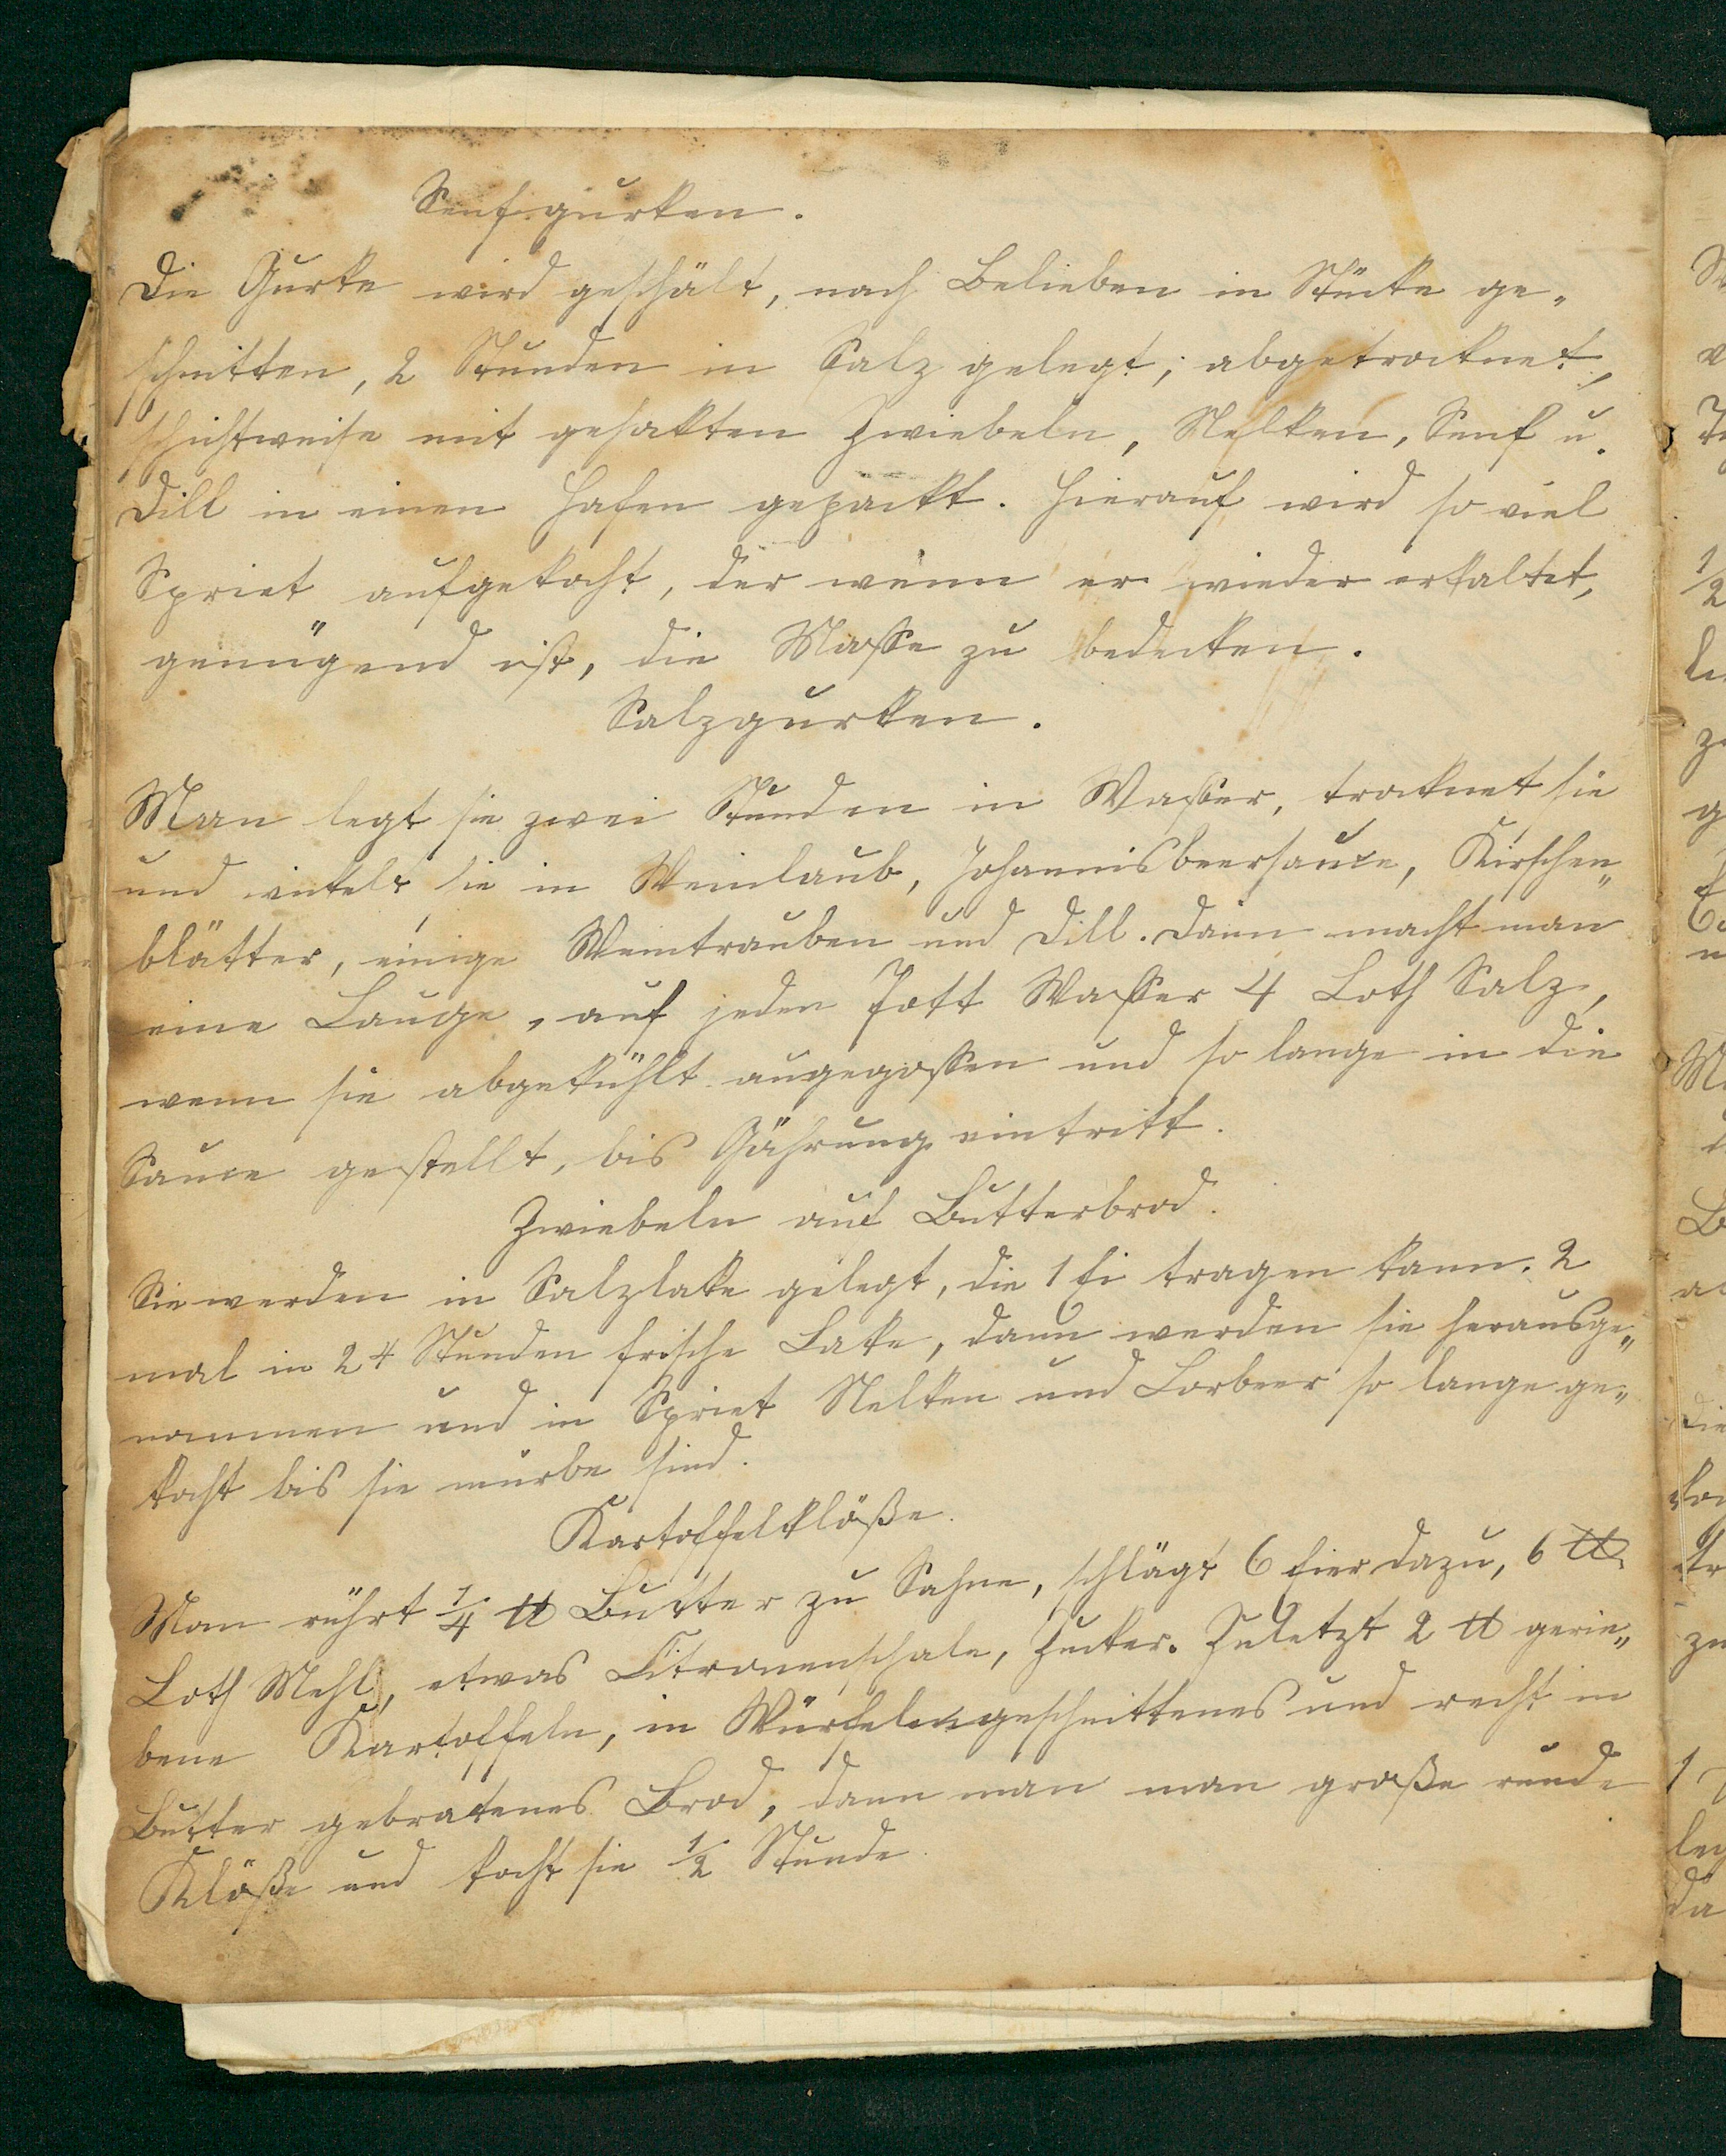 Senfgurken.
Die Gurke wird geschält, nach Belieben in Stücke ge„
schnitten, 2 Stunden in Salz gelegt; abgetrocknet,
schichtweise mit gehakten Zwiebeln, Nelken, Senf u.
Dill in einen Hafen gepackt. Hierauf wird so viel
Spriet aufgekocht, der wenn er wieder erkaltet,
genügend ist, die Masse zu bedecken.
Salzgurken.
Man legt sie zwei Stunden in Wasser, trocknet sie
und wickelt sie in Weinlaub, Johannisbeersauce, Kirschen„
blätter, einige Weintrauben und Dill. Dann macht man
eine Lauge, auf jeden Pott Wasser 4 Loth Salz,
wenn sie abgekühlt aufgegossen und so lange in die
Sauce gestellt, bis Gährung eintritt.
Zwiebeln auf Butterbrod.
Sie werden in Salzlake gelegt, die 1 Ei tragen kann. 2
mal in 24 Stunden frische Lake, dann werden sie herausge„
nommen und in Spriet Nelken und Lorbeer so lange ge„
kocht bis sie mürbe sind.
Kartoffelklöße.
Man rührt 1/4 ℔ Butter zu Sahne, schlägt 6 Eier dazu, 6 ℔
Loth Mehl, etwas Citronenschale, Zucker. Zuletzt 2 ℔ gerie„
bene Kartoffeln, in Würfeln geschnittenes und recht in
Butter gebratenes Brod, dann man man große runde
Klöße und kocht sie 1/2 Stunde.